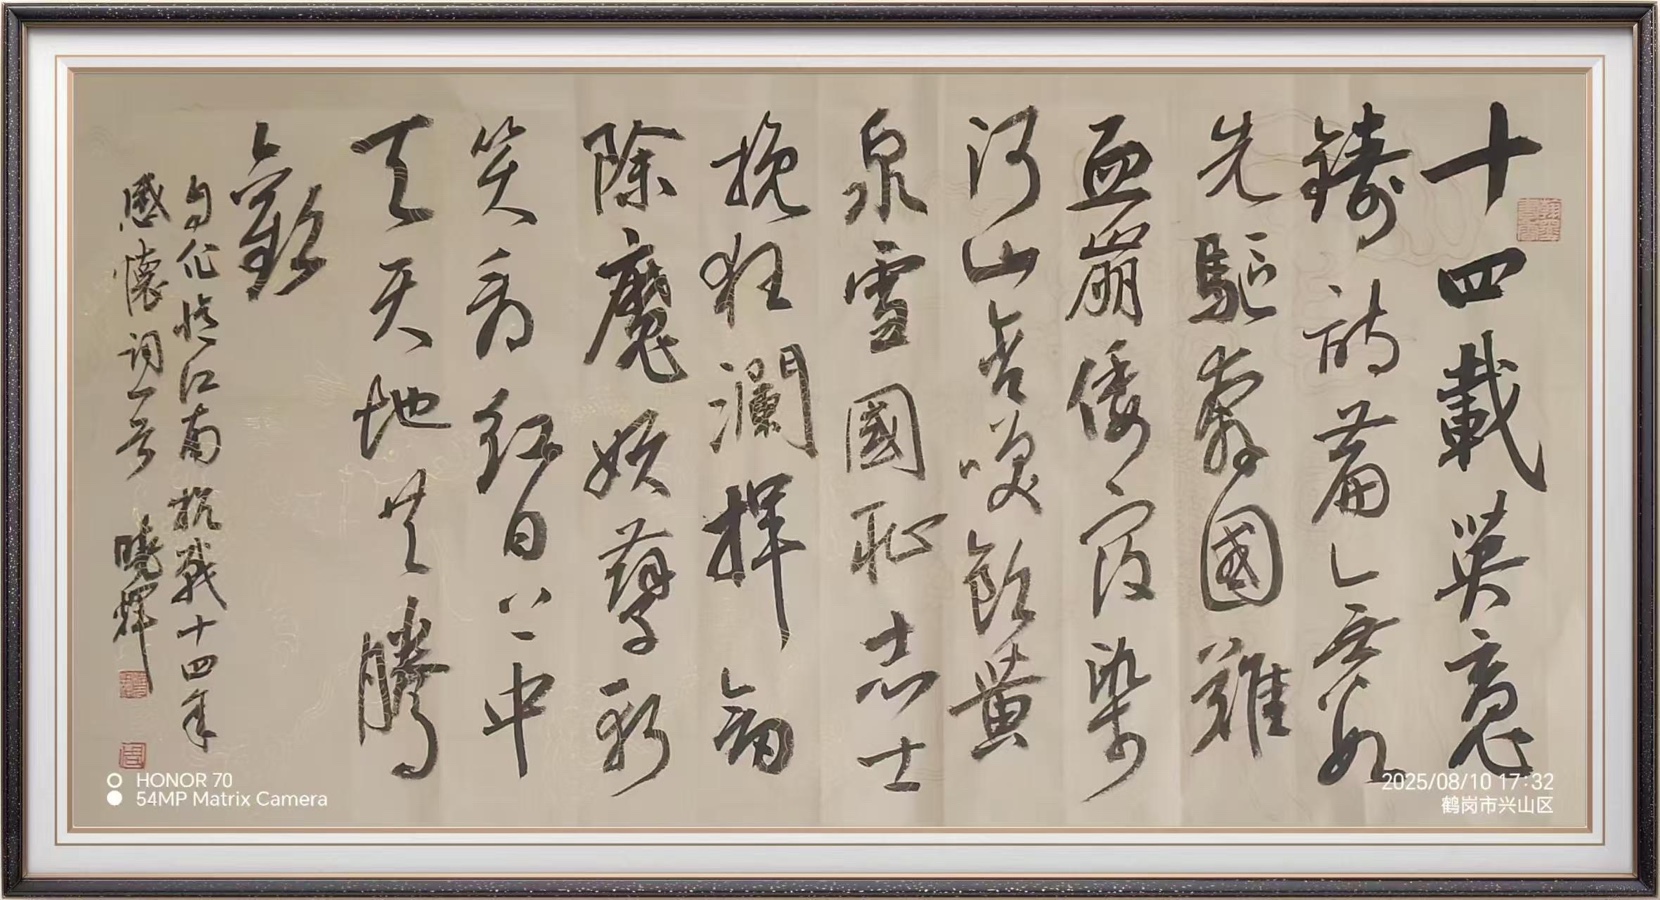 十四載英魂
鑄詩篇無數
先驅奔國難
血崩倭寇染
河山含咲飲黃
泉雪國恥志士
挽狂瀾揮劍
除魔妖孽
笑看紅日上中
天天地共騰
歡
自作憶江南抗戰十四年
感懷詞二首 曉輝
HONOR 70
54MP Matrix Camera
2025/08/10 17:32
鹤岗市兴山区